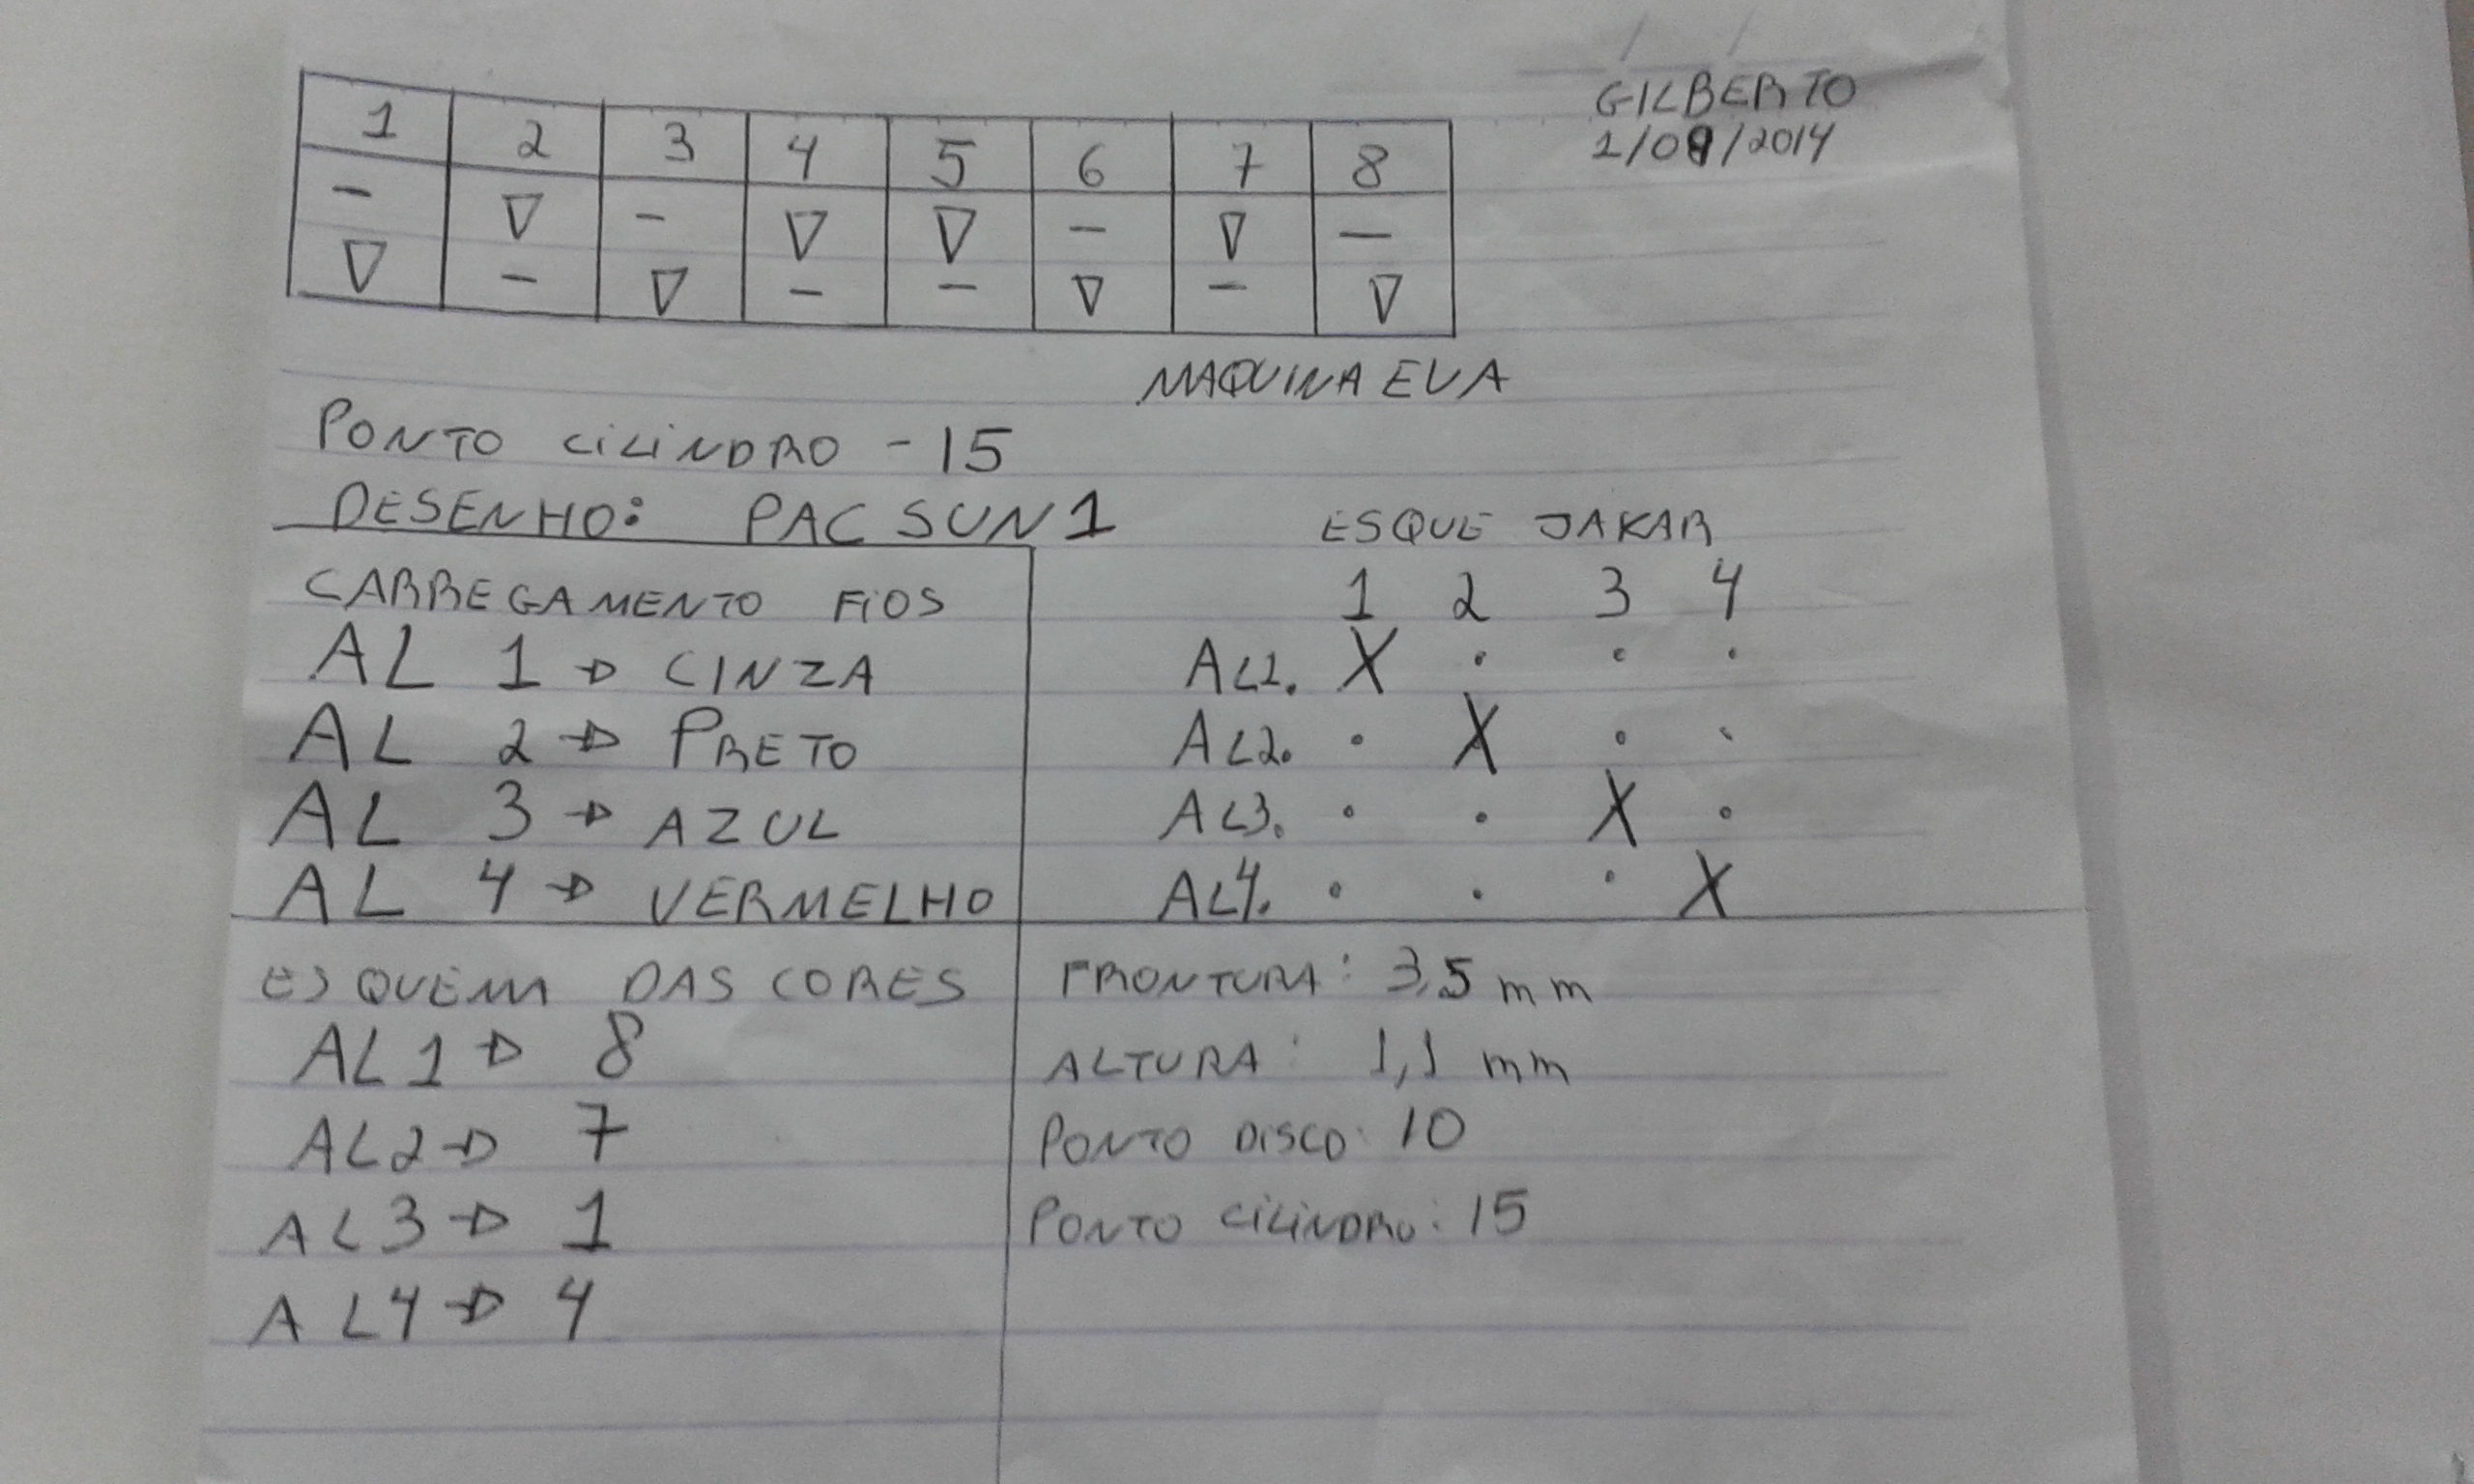 GILBERTO
1/09/2014
1 2 3 4 5 6 7 8
- ▽ - ▽ ▽ - ▽ -
▽ - ▽ - - ▽ - ▽
MAQUINA EVA
PONTO CILINDRO - 15
DESENHO: PAC SUN 1
CARREGAMENTO FIOS
AL 1 → CINZA
AL 2 → PRETO
AL 3 → AZUL
AL 4 → VERMELHO
ESQUE JAKAR
1 2 3 4
AL1. X . . .
AL2. . X . .
AL3. . . X .
AL4. . . . X
ESQUEMA DAS CORES
AL1 → 8
AL2 → 7
AL3 → 1
AL4 → 4
FRONTURA: 3,5 mm
ALTURA: 1,1 mm
PONTO DISCO: 10
PONTO CILINDRO: 15